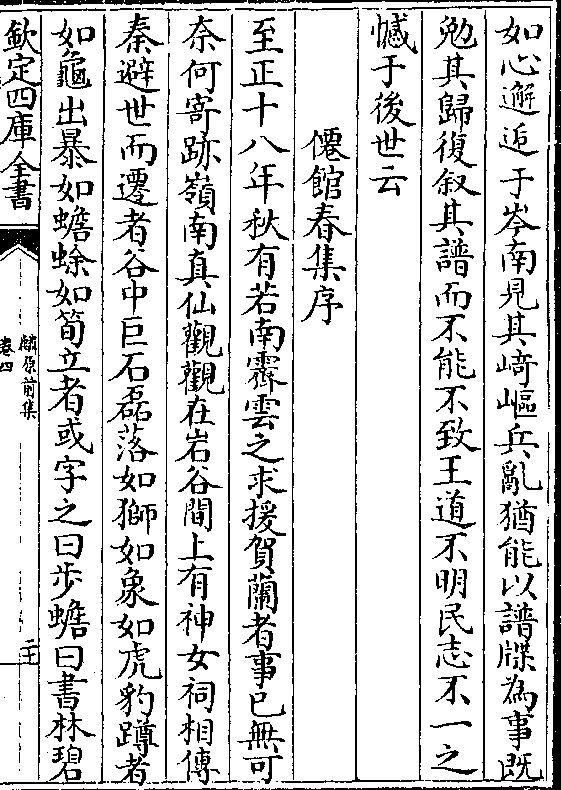 如心邂逅于岑南見其﨑嶇兵亂猶能以譜牒為事既
勉其歸復叙其譜而不能不致王道不明民志不一之
憾于後世云
僊館春集序
至正十八年秋有若南霽雲之求援賀蘭者事已無可
奈何寄跡嶺南真仙觀觀在岩谷間上有神女祠相傳
秦避世而遷者谷中巨石磊落如獅如象如虎豹蹲者
如龜出暴如蟾蜍如筍立者或字之曰步蟾曰書林碧
欽定四庫全書
麟原前集
卷四
二十